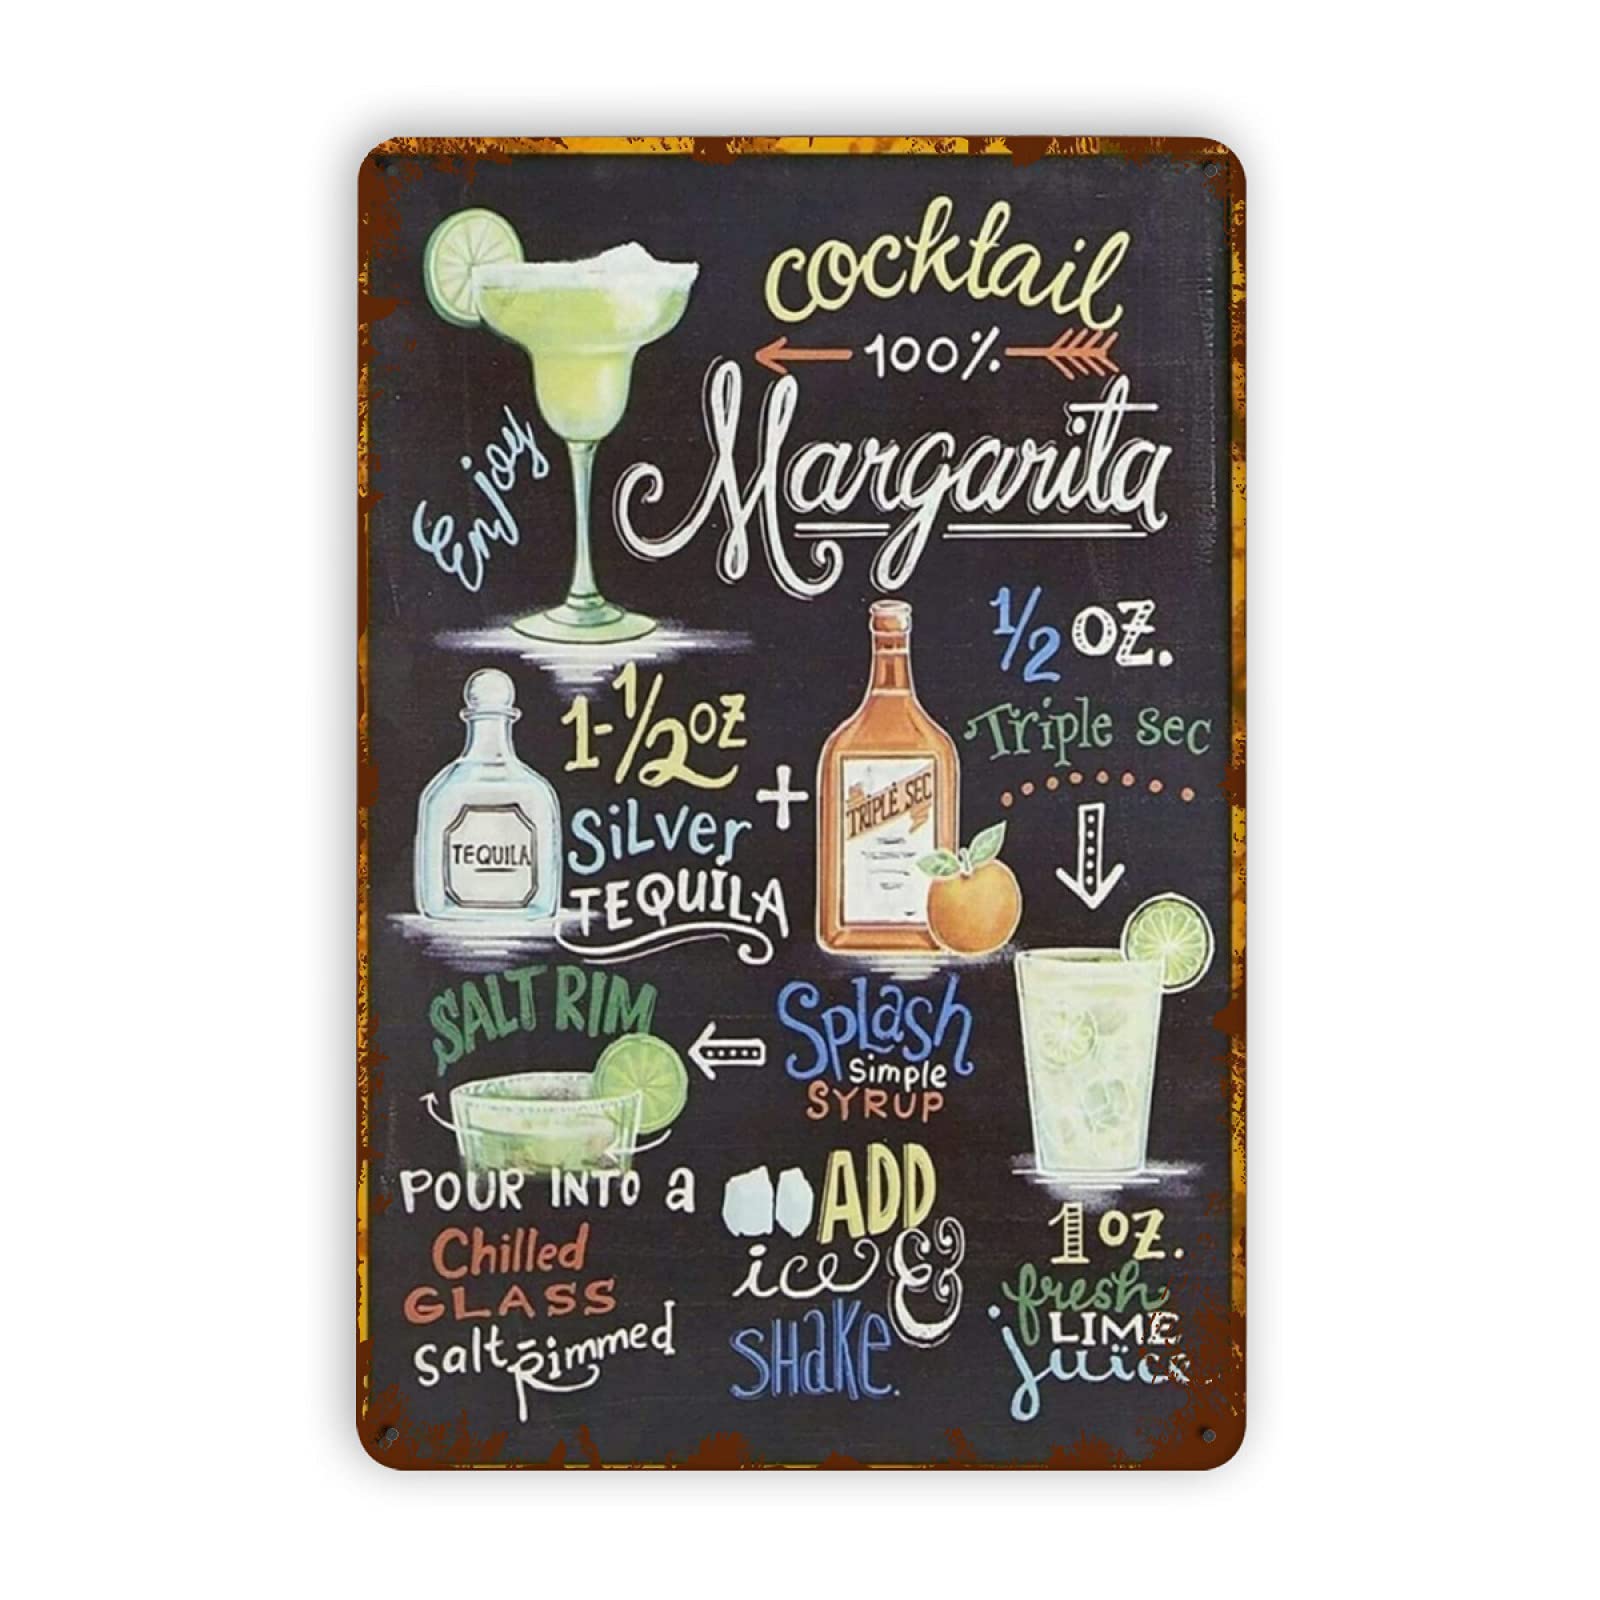 cocktail
100%
Margarita
Enjoy
1-1/2 oz
Silver
TEQUILA
TEQUILA
+
TRIPLE SEC
1/2 oz.
Triple sec
1 oz.
fresh
LIME
juice
Splash
Simple
SYRUP
SALT RIM
ADD
ice &
SHAKE.
POUR INTO a
Chilled
GLASS
Salt-Rimmed